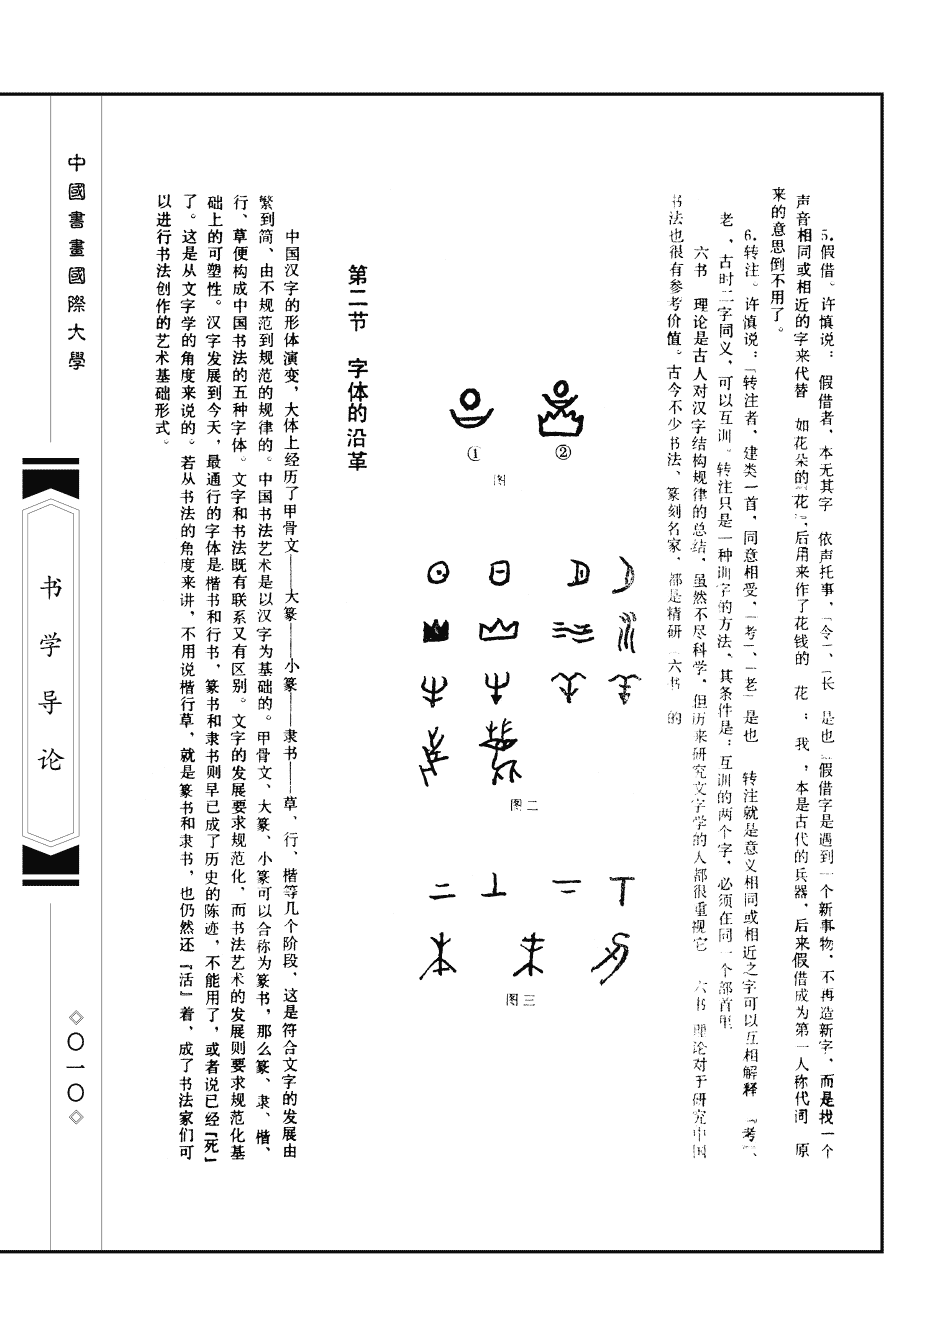 5.假借。许慎说：假借者，本无其字 依声托事，「令」、「长 是也 假借字是遇到一个新事物，不再造新字，而是找一个
声音相同或相近的字来代替 如花朵的「花」，后用来作了花钱的 花 ；我 ，本是古代的兵器，后来假借成为第一人称代词 原
来的意思倒不用了。
6.转注。许慎说：「转注者，建类一首，同意相受，「考」、「老」是也 转注就是意义相同或相近之字可以互相解释 「考」、
老 ，古时二字同义，可以互训。转注只是一种训字的方法，其条件是：互训的两个字，必须在同一个部首里
六书 理论是古人对汉字结构规律的总结，虽然不尽科学，但历来研究文字学的人都很重视它 六书 理论对于研究中国
书法也很有参考价值。古今不少书法、篆刻名家，都是精研 六书 的
①
②
图
图二
图三
第二节 字体的沿革
中国汉字的形体演变，大体上经历了甲骨文——大篆——小篆——隶书——草、行、楷等几个阶段，这是符合文字的发展由
繁到简，由不规范到规范的规律的。中国书法艺术是以汉字为基础的。甲骨文、大篆、小篆可以合称为篆书，那么篆、隶、楷、
行、草便构成中国书法的五种字体。文字和书法既有联系又有区别。文字的发展要求规范化，而书法艺术的发展则要求规范化基
础上的可塑性。汉字发展到今天，最通行的字体是楷书和行书，篆书和隶书则早已成了历史的陈迹，不能用了，或者说已经『死』
了。这是从文字学的角度来说的。若从书法的角度来讲，不用说楷行草，就是篆书和隶书，也仍然还『活』着，成了书法家们可
以进行书法创作的艺术基础形式。
中國書畫國際大學
书学导论
〇一〇